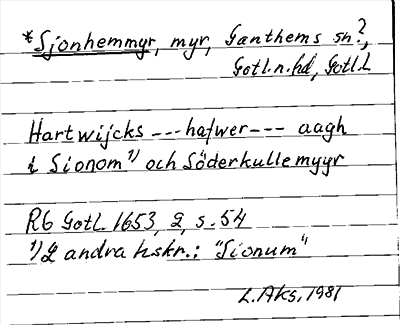 *Sjonhemmyr, myr, Ganthems sn?,
Gotl.n.hd, Gotl.L
Hartwijcks --- hafwer --- aagh
i Sionom ¹⁾ och Söderkulle myyr
R6 Gotl. 1653, 2, s. 54
¹⁾ 2 andra hskr.: "Sionum"
L.Aks, 1981